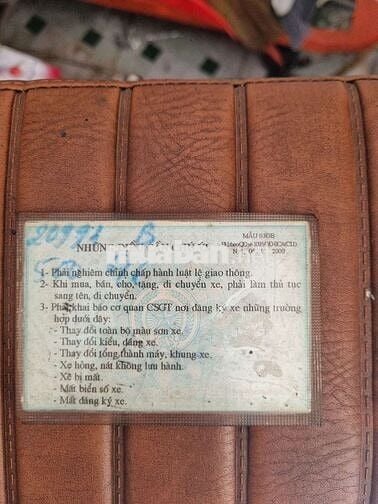 20991 B
MẪU 03ĐB
NHỮNG
1- Phải nghiêm chỉnh chấp hành luật lệ giao thông.
2- Khi mua, bán, cho, tặng, di chuyển xe, phải làm thủ tục
sang tên, di chuyển.
3- Phải khai báo cơ quan CSGT nơi đăng ký xe những trường
hợp dưới đây:
- Thay đổi toàn bộ màu sơn xe.
- Thay đổi kiểu, dáng xe.
- Thay đổi tổng thành máy, khung xe.
- Xe hỏng, nát không lưu hành.
- Xe bị mất.
- Mất biển số xe.
- Mất đăng ký xe.